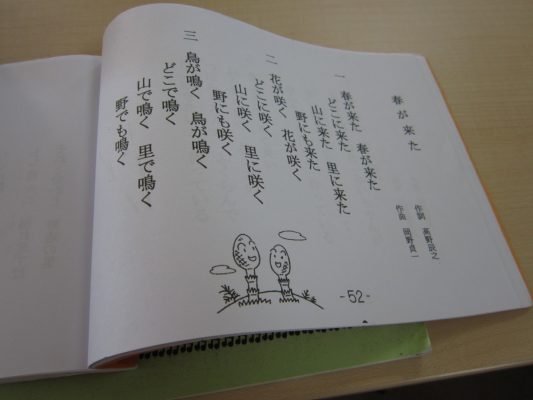 春が来た
作詞 高野辰之
作曲 岡野貞一
一 春が来た 春が来た
どこに来た
山に来た 里に来た
野にも来た
二 花が咲く 花が咲く
どこに咲く
山に咲く 里に咲く
野にも咲く
三 鳥が鳴く 鳥が鳴く
どこで鳴く
山で鳴く 里で鳴く
野でも鳴く
-52-